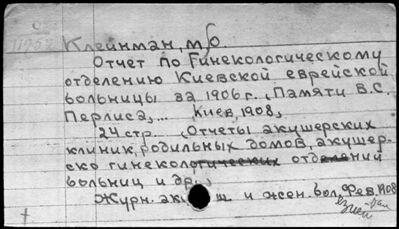 Клейнман, М/О.
Отчет по Гинекологическому
отделению Киевской еврейской
больницы за 1906 г., Памяти В.С.
Перлиса,... Киев, 1908,
24 стр... (Отчеты акушерских
клиник, родильных домов, акушер-
ско гинекологических отделений
больниц и др.,
Журн. аку ш. и жен. бол. Фев. 1908